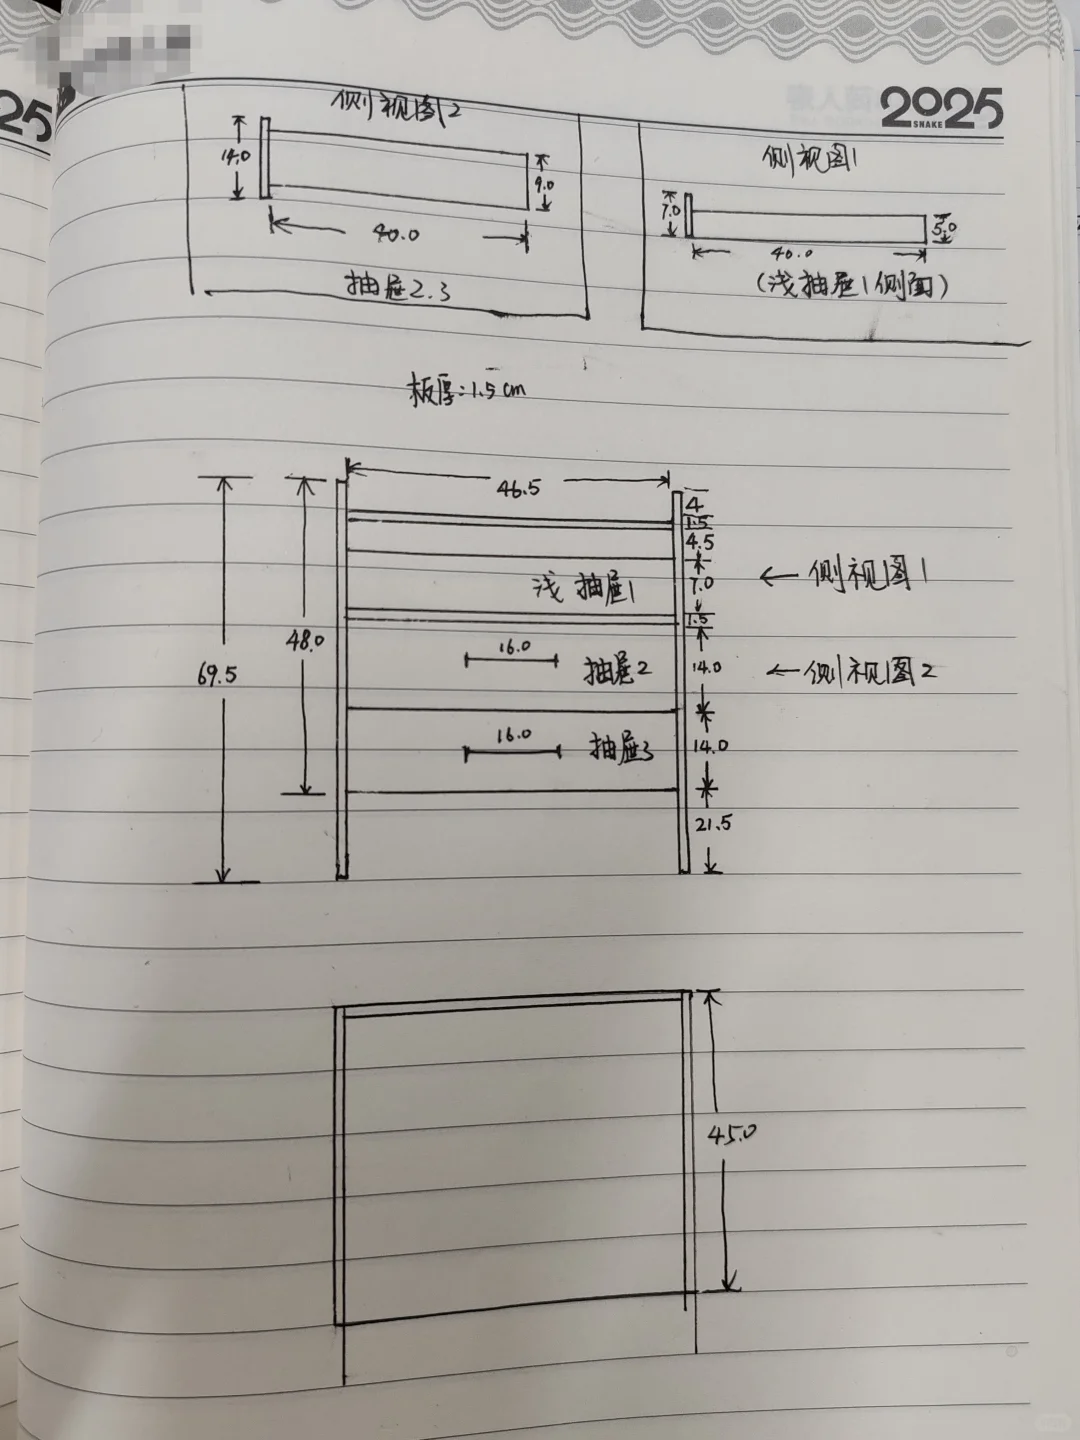 25
2025
SNAKE
侧视图2
14.0
9.0
40.0
抽屉2.3
侧视图1
7.0
5.0
40.0
(浅抽屉1侧面)
板厚:1.5cm
46.5
4
1.5
4.5
7.0
浅 抽屉1
←侧视图1
1.5
48.0
69.5
16.0
抽屉2
14.0
←侧视图2
16.0
抽屉3
14.0
21.5
45.0